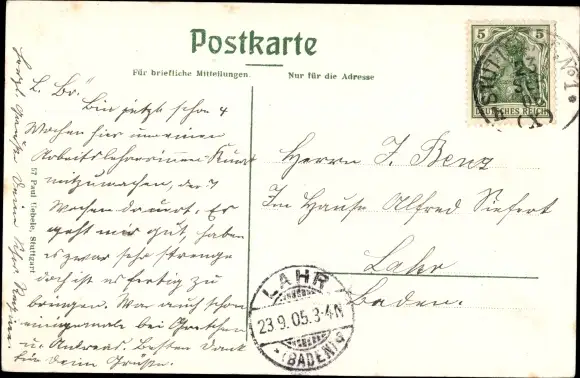 Postkarte
Für briefliche Mitteilungen.
Nur für die Adresse
5 5
DEUTSCHES REICH
STUTT No 1
L. Br.!
Bin jetzt schon 4
Wochen hier um einen
Arbeitslehrerinnen-Kurs
mitzumachen, der 7
Wochen dauert. Es
geht mir gut, haben
es zwar sehr strenge
doch ist es fertig zu
bringen. War auch schon
einigemale bei Gretchen
u. Andreas. Besten Dank
für Deine Grüße.
Herzl. Grüße Deine
57 Paul Uebele, Stuttgart
Herrn J. Benz
Im Hause Alfred Siefert
Lahr
Baden.
LAHR
23.9.05.3-4N
(BADEN)